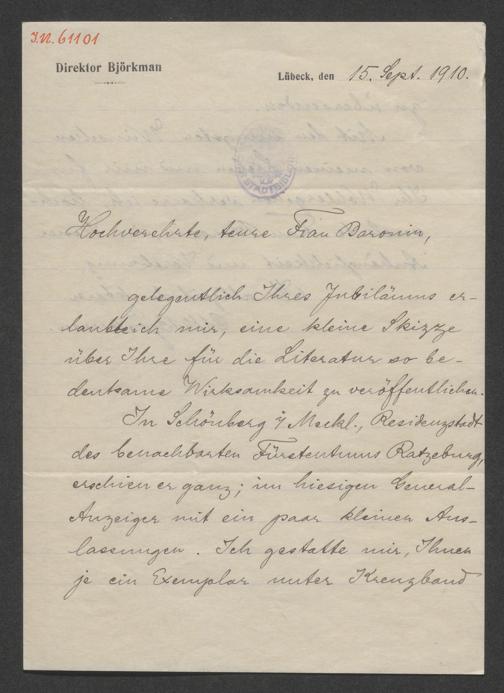 I.N. 61101
Direktor Björkman
Lübeck, den 15. Sept. 1910.
Hochverehrte, teure Frau Baronin,
gelegentlich Ihres Jubiläums er-
laubte ich mir, eine kleine Skizze
über Ihre für die Literatur so be-
deutsame Wirksamkeit zu veröffentlichen.
In Schönberg i/ Meckl., Residenzstadt
des benachbarten Fürstenthums Ratzeburg,
erschien er ganz; im hiesigen General-
Anzeiger mit ein paar kleinen Aus-
lassungen. Ich gestatte mir, Ihnen
je ein Exemplar unter Kreuzband